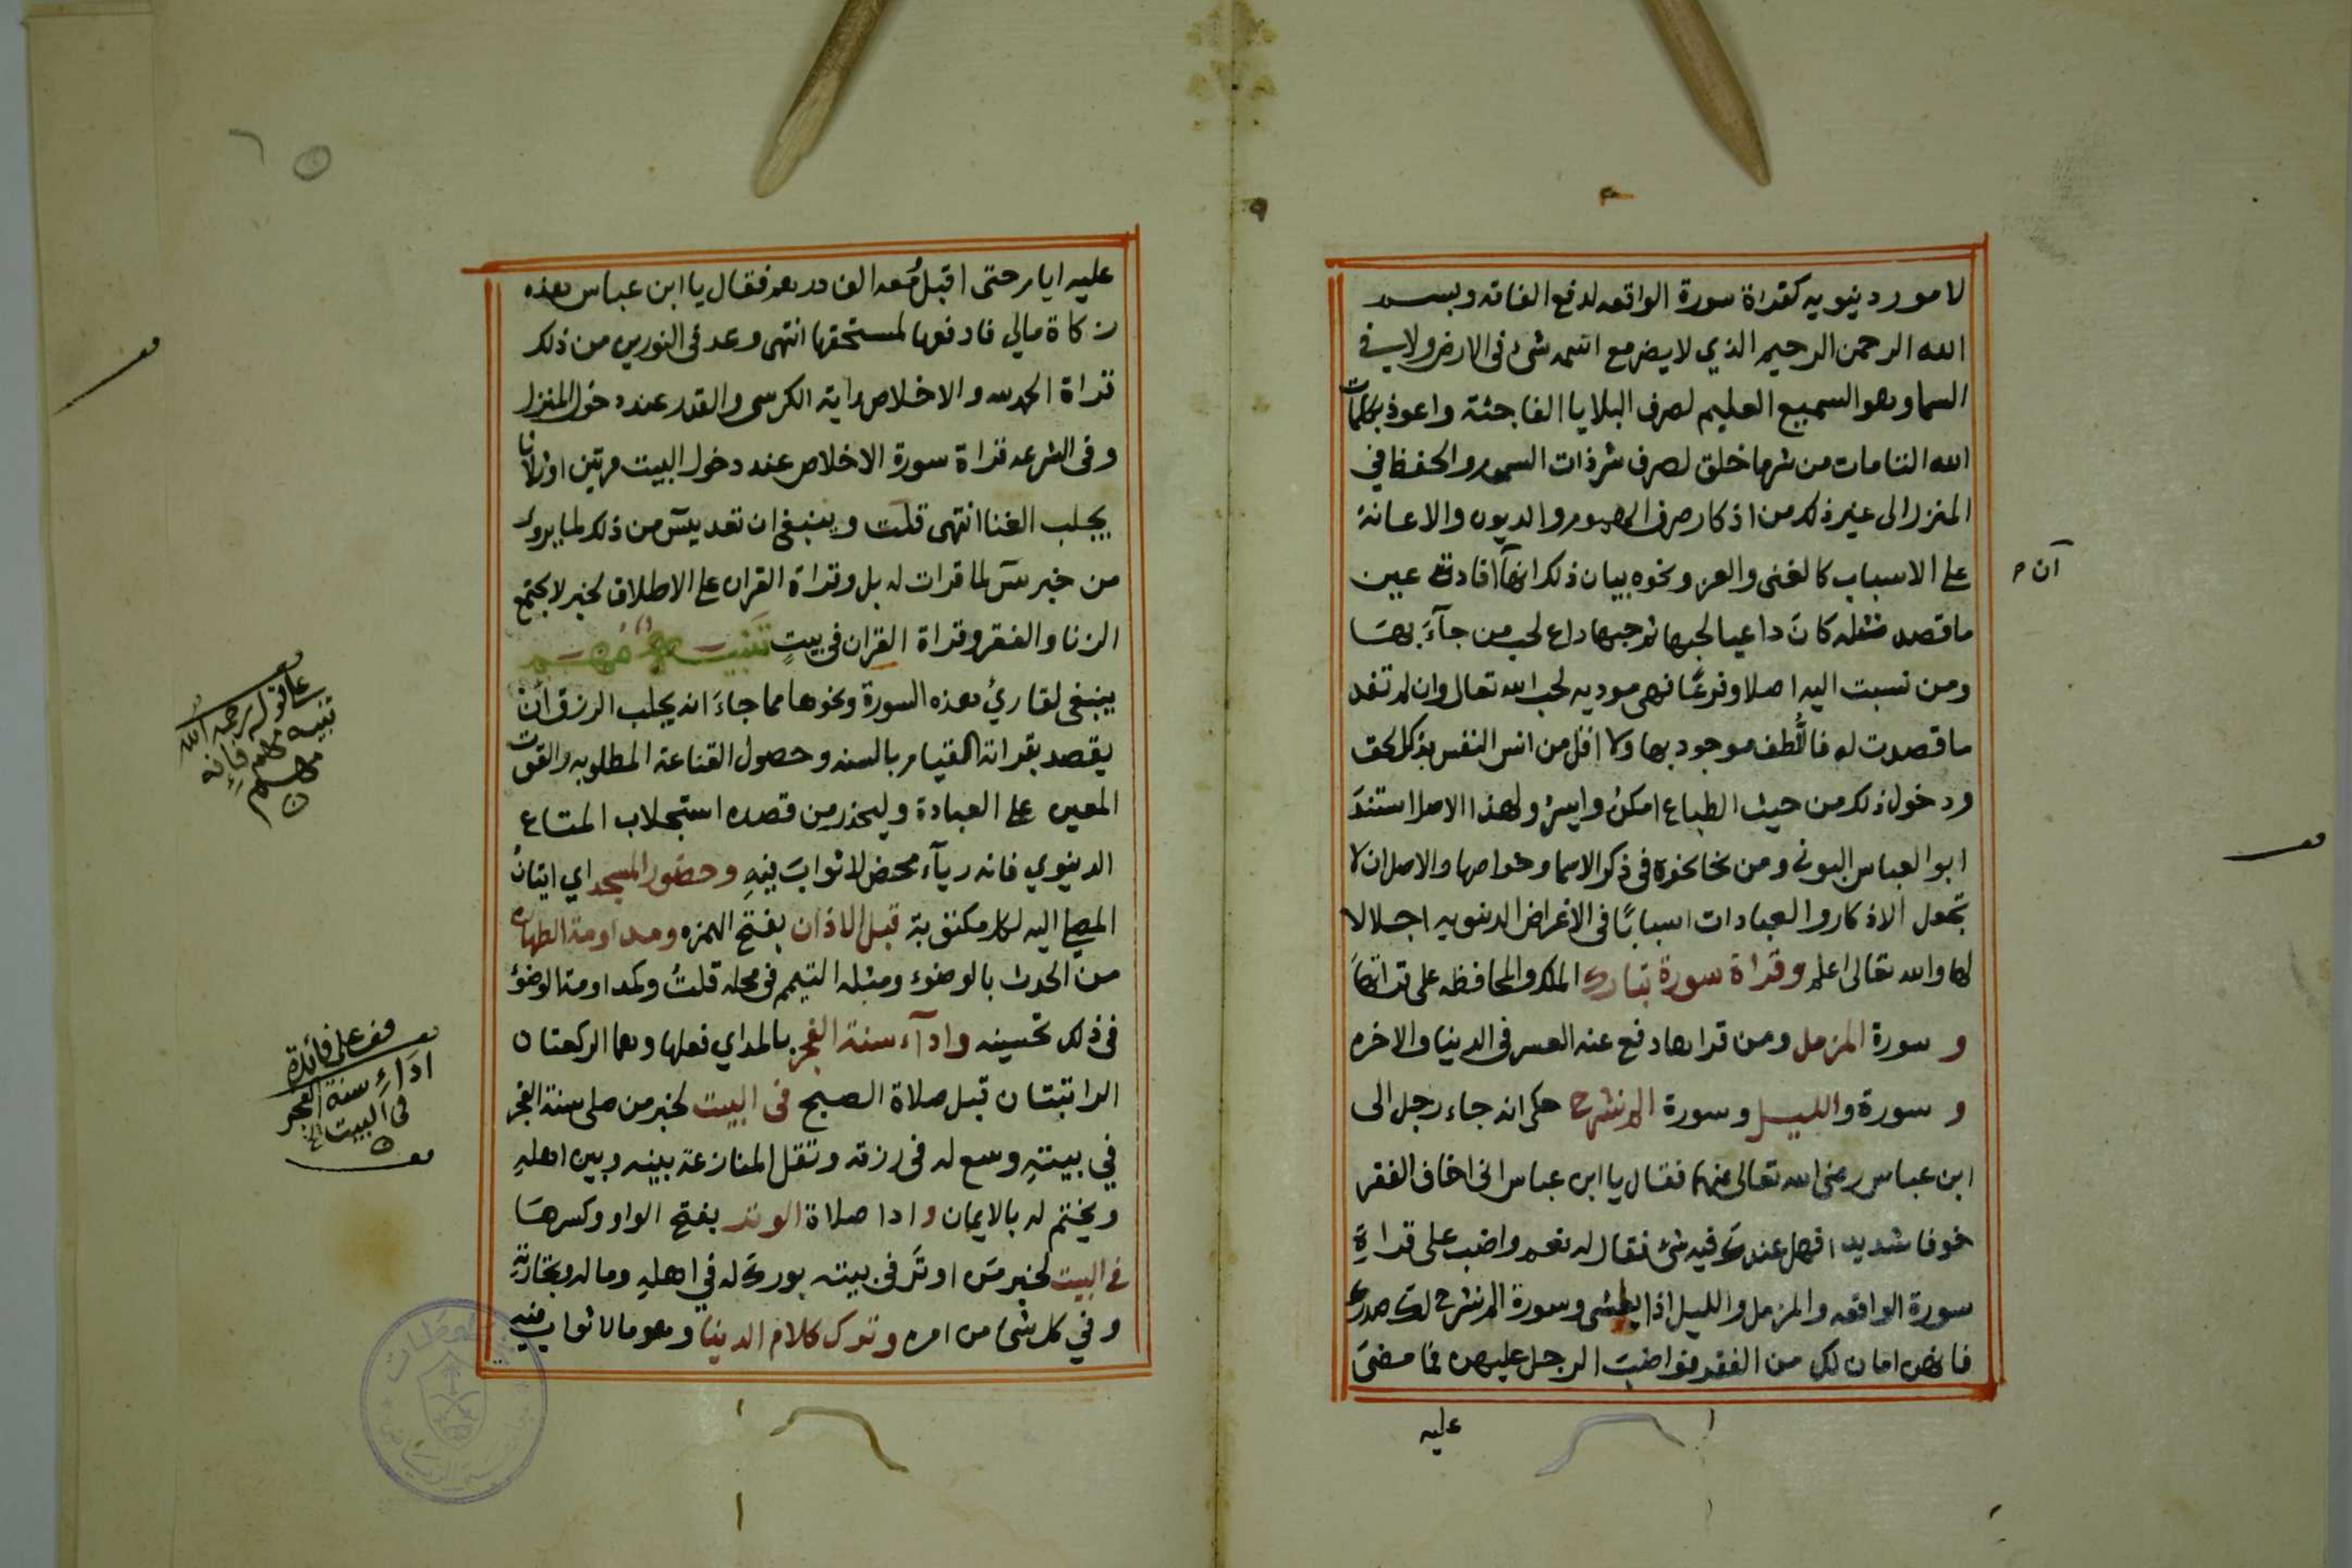 لامور دنيويه كقراة سورة الواقعه لدفع الفاقه وبسم
الله الرحمن الرحيم الذي لا يضر مع اسمه شئ فى الارض ولا في
السما وهو السميع العليم لصرف البلايا الفاجئة واعوذ بكلمات
الله التامات من شر ما خلق لصرف شر ذات السموم والحفظ في
المنزل الى غير ذلك من اذكار صرف الهموم والديون والاعانة
على الاسباب كالغنى والعز ونحوه بيان ذلك انها افادت عين
ما قصد كان داعيا لحبها ثم حبها داع لحب من جآء بها
ومن نسبت اليه اصلا وفرعًا فهى موديه لحب الله تعالى وان لم تفد
ما قصدت له فاللُّطف موجود بها ولا اقل من انس النفس بذكر الحق
ودخول ذلك من حيث الطباع امكن وايسر ولهذا الاصل استند
ابو العباس البونى ومن نحا نحوه فى ذكر الاسما وخواصها والاصل ان لا
تجعل الاذكار والعبادات اسبابًا فى الاغراض الدنيويه اجلالا
لها والله تعالى اعلم وقراة سورة تبارك الملك والمحافظه على قراتها
و سورة المزمل ومن قراها دفع عنه العسر فى الدنيا والاخره
و سورة والليل وسورة الم نشرح حكى انه جاء رجل الى
ابن عباس رضى الله تعالى عنهما فقال يا ابن عباس انى اخاف الفقر
خوفا شديدا فهل عندك فيه شئ فقال له نعم واضب على قراةِ
سورة الواقعه والمزمل والليل اذا يغشى وسورة الم نشرح لك صدرك
فانهن امان لك من الفقر فواضب الرجل عليهن فما مضى
عليه
عليه ايام حتى اقبل ومعه الف درهم فقال يا ابن عباس هذه
زكاة مالي فادفعها لمستحقها انتهى وعد فى النورين من ذلك
قراة الحمد لله والاخلاص واية الكرسى والقدر عند دخول المنزل
وفى الشرعه قراة سورة الاخلاص عند دخول البيت مرتين او ثلاثا
يجلب الغنا انتهى قلت وينبغى ان تعد يسٓ من ذلك لما يروى
من خبر يسٓ لما قرات له بل وقراة القران على الاطلاق لخبر لا يجتمع
الزنا والفقر وقراة القران فى بيتٍ تنبيه مهم
ينبغى لقارئ هذه السورة ونحوها مما جاءَ انه يجلب الرزق ان
يقصد بقراته القيام بالسنه وحصول القناعة المطلوبه والقوت
المعين على العبادة وليحذر من قصده استجلاب المتاع
الدنيوي فانه ريآء محض لا ثواب فيهِ وحضور المسجد اي اتيان
المصلى اليه لكل مكتوبة قبل الاذان بفتح الهمزه ومداومة الطهارة
من الحدث بالوضوء ومثله التيمم فى محله قلتُ وكمداومة الوضوء
فى ذلك تحسينه واداآء سنة الفجر بالمد اي فعلها وهما الركعتان
الراتبتان قبل صلاة الصبح فى البيت لخبر من صلى سنة الفجر
في بيتهِ وسع له فى رزقه وتقل المنازعة بينه وبين اهلهِ
ويختم له بالايمان وادا صلاة الوتر بفتح الواو وكسرها
فى البيت لخبر من اوتَر فى بيته بورك له في اهلهِ وماله وتجارتهِ
وفي كل شئ من امره وترك كلام الدنيا وهو مالا ثواب فيهِ
على قوله رحمه الله
تنبيه مهم فإنه
مهم
قف على فائدة
اداءِ سنة الفجر
فى البيت